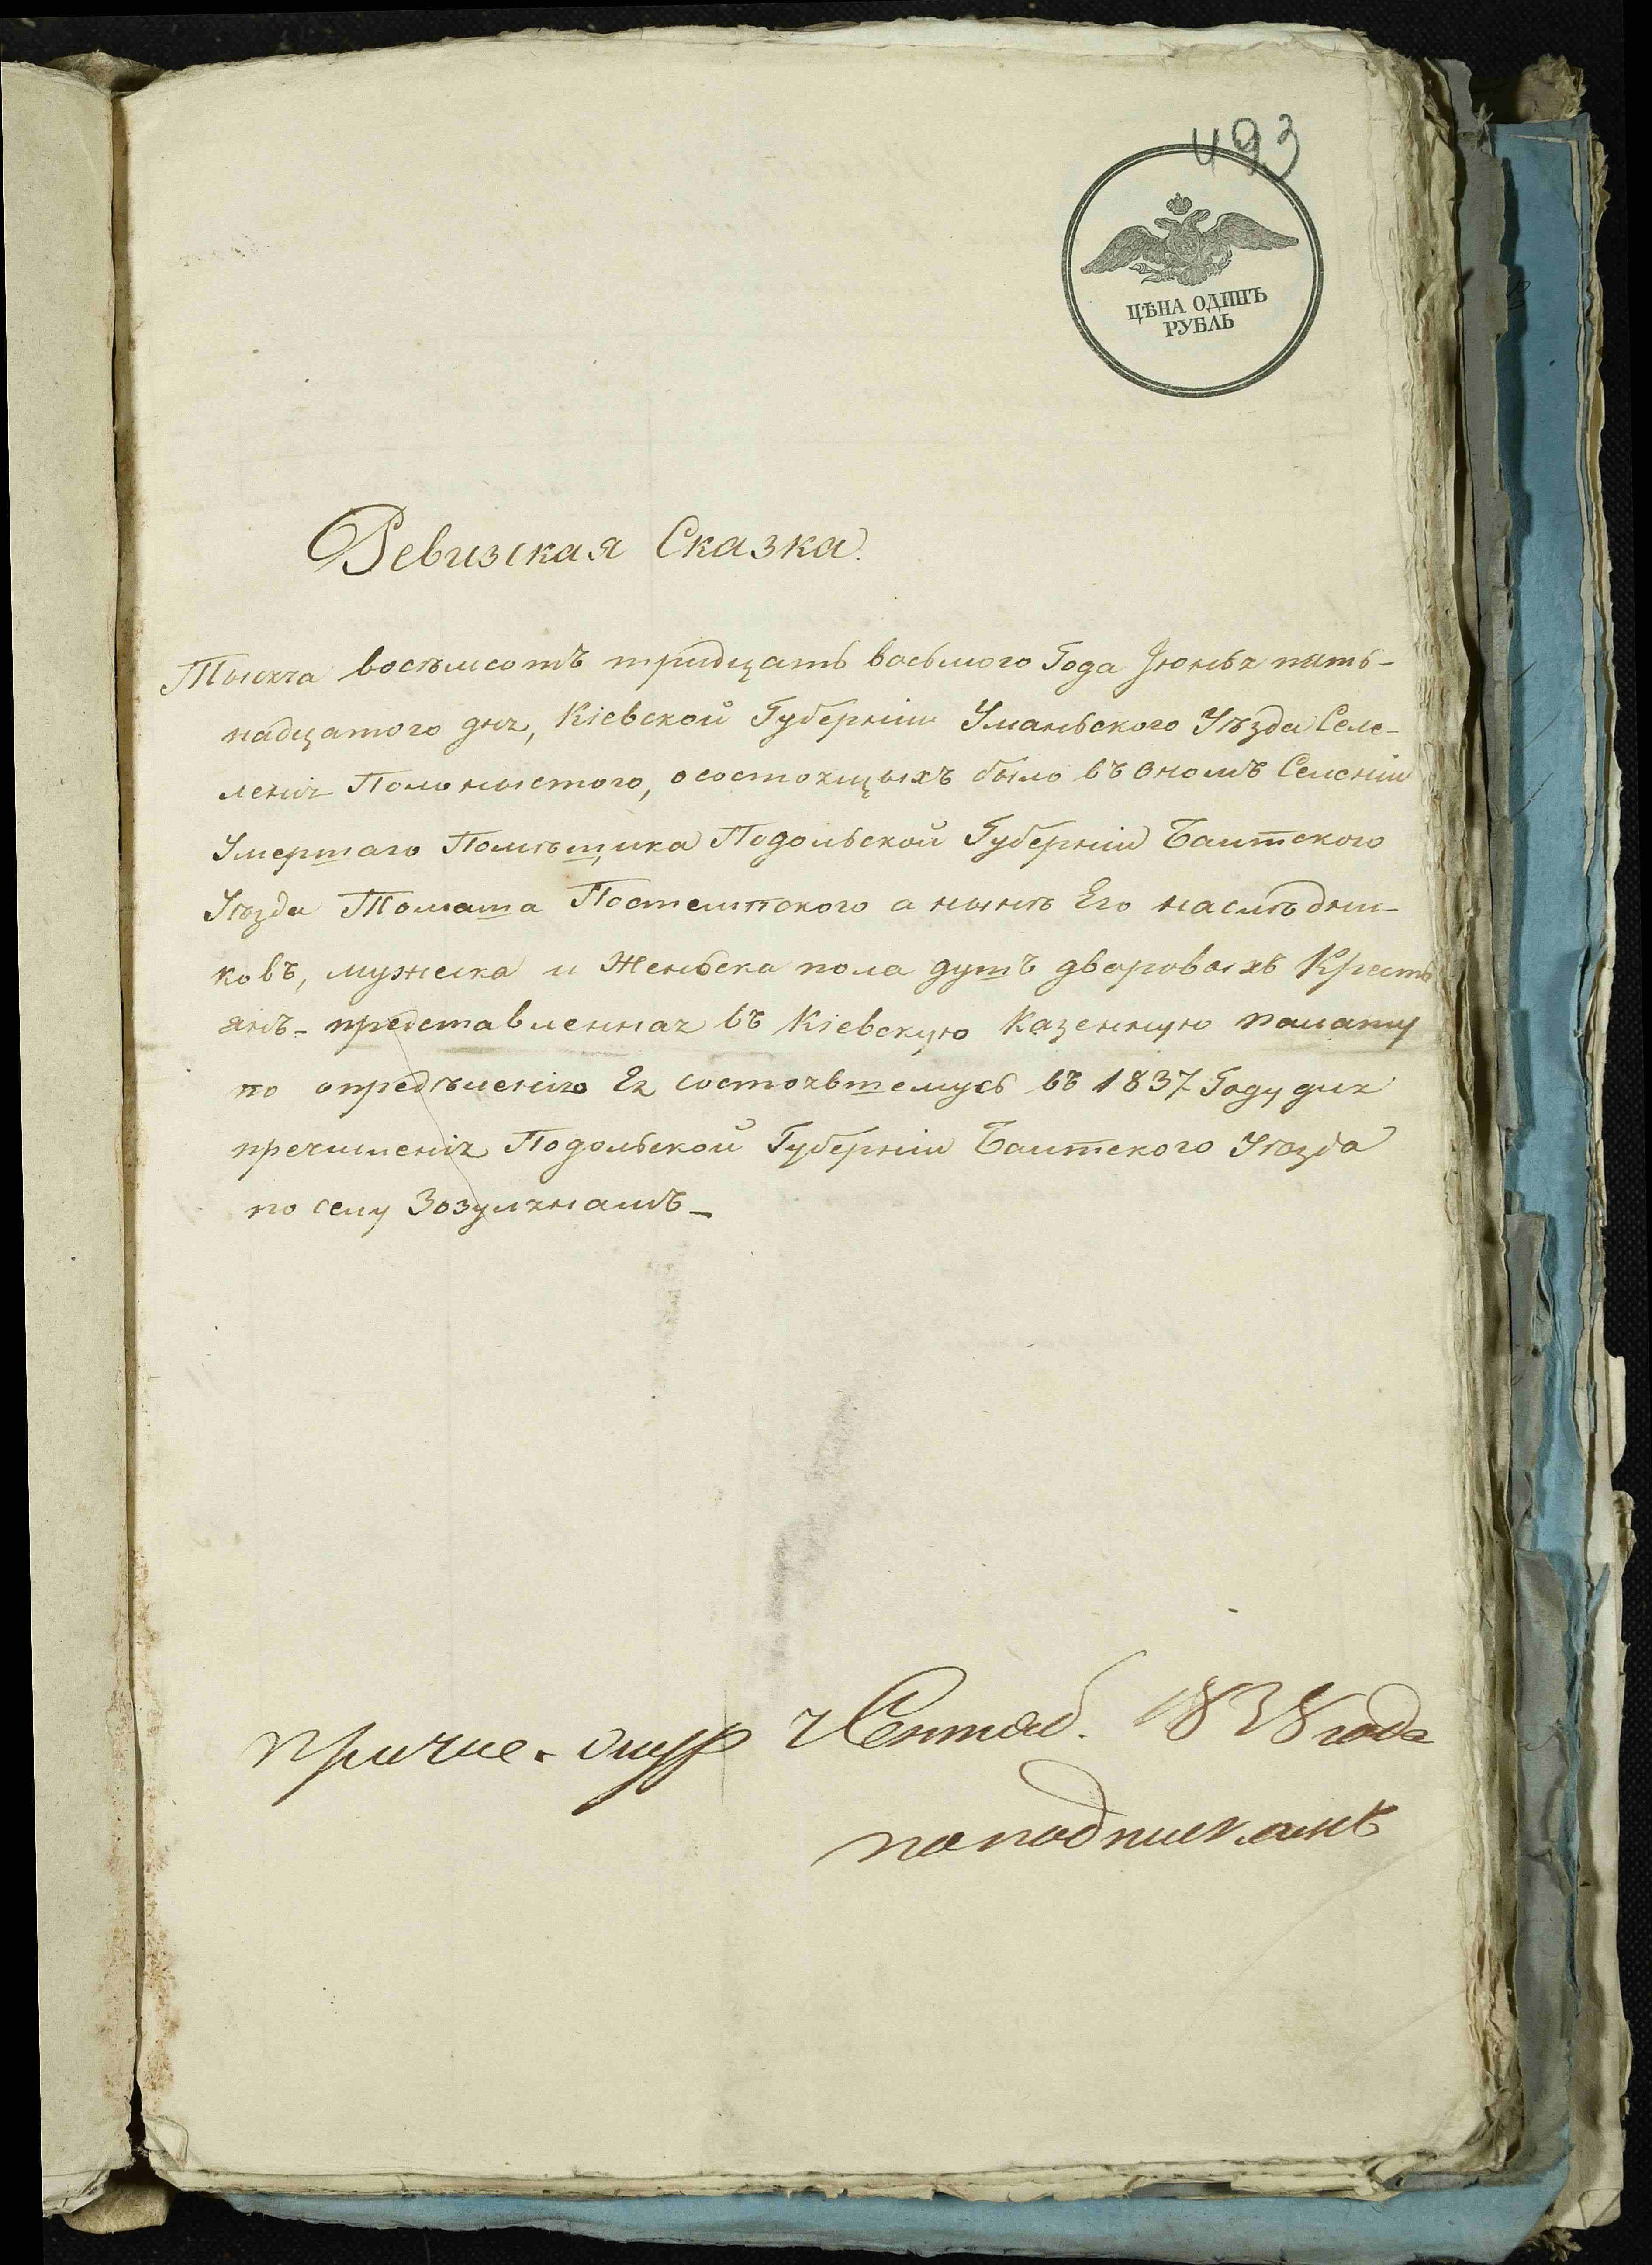 493
ЦѢНА ОДИНЪ
РУБЛЬ
Ревизская Сказка.
Тысяча восѣмсотъ тридцать восьмого Года Іюнья пять-
надцатого дня, Кіевской Губерніи Уманьского Уѣзда Селе-
ленія Полонистого, осостоящыхъ было въ Ономъ Селеніи
Умершаго Помѣщика Подольской Губерніи Балтского
Уѣзда Томаша Постемпского а нынѣ Его наслѣдни-
ковъ, мужеска и Женьска пола душъ дворовыхъ Кресть
янъ - представленная въ Кіевскую Казенную палату
по опредѣленію Ея состоявшемусь въ 1837 Году для
пречисленія Подольской Губерніи Балтского Уѣзда
по селу Зозулянамъ -
7 Сентяб. 1838 года